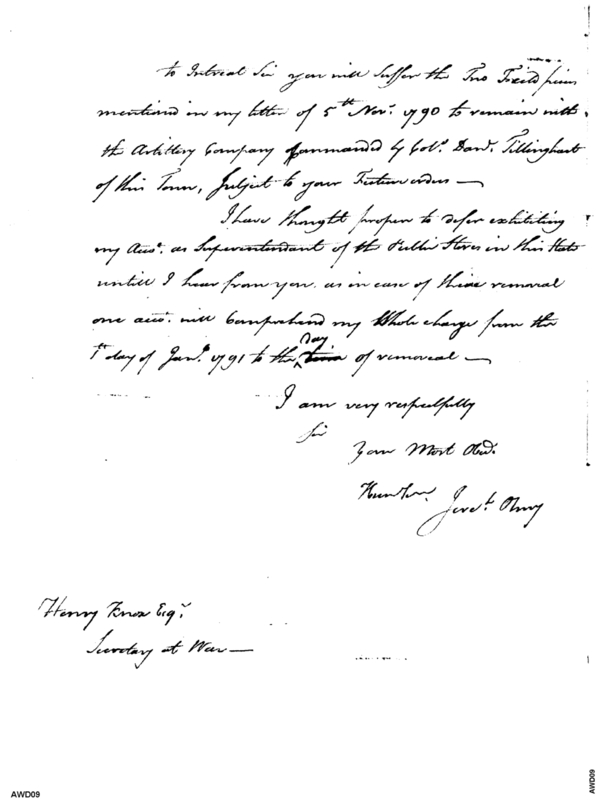 to Intreat Sir you will Suffer the Two Field pieces
mentiand in my letter of 5th Novr. 1790 to remain with
the Artillery Company Commanded by Colo. Danl. Tillinghast
of this Town, Subject to your Future orders —
I have thought proper to defer exhibiting
my Acco. as Superintendant of the Public Stores in this State
untill I hear from you. as in case of thier removal
one acco. will Comprehend my Whole charge from the
1st day of Jany. 1791 to the Day of removeal —
I am very respectfully
Sir
Your Most Obd.
Hum Ser.
Jereh. Olney
Henry Knox Esqr.
Secretary at War —
AWD09
AWD09